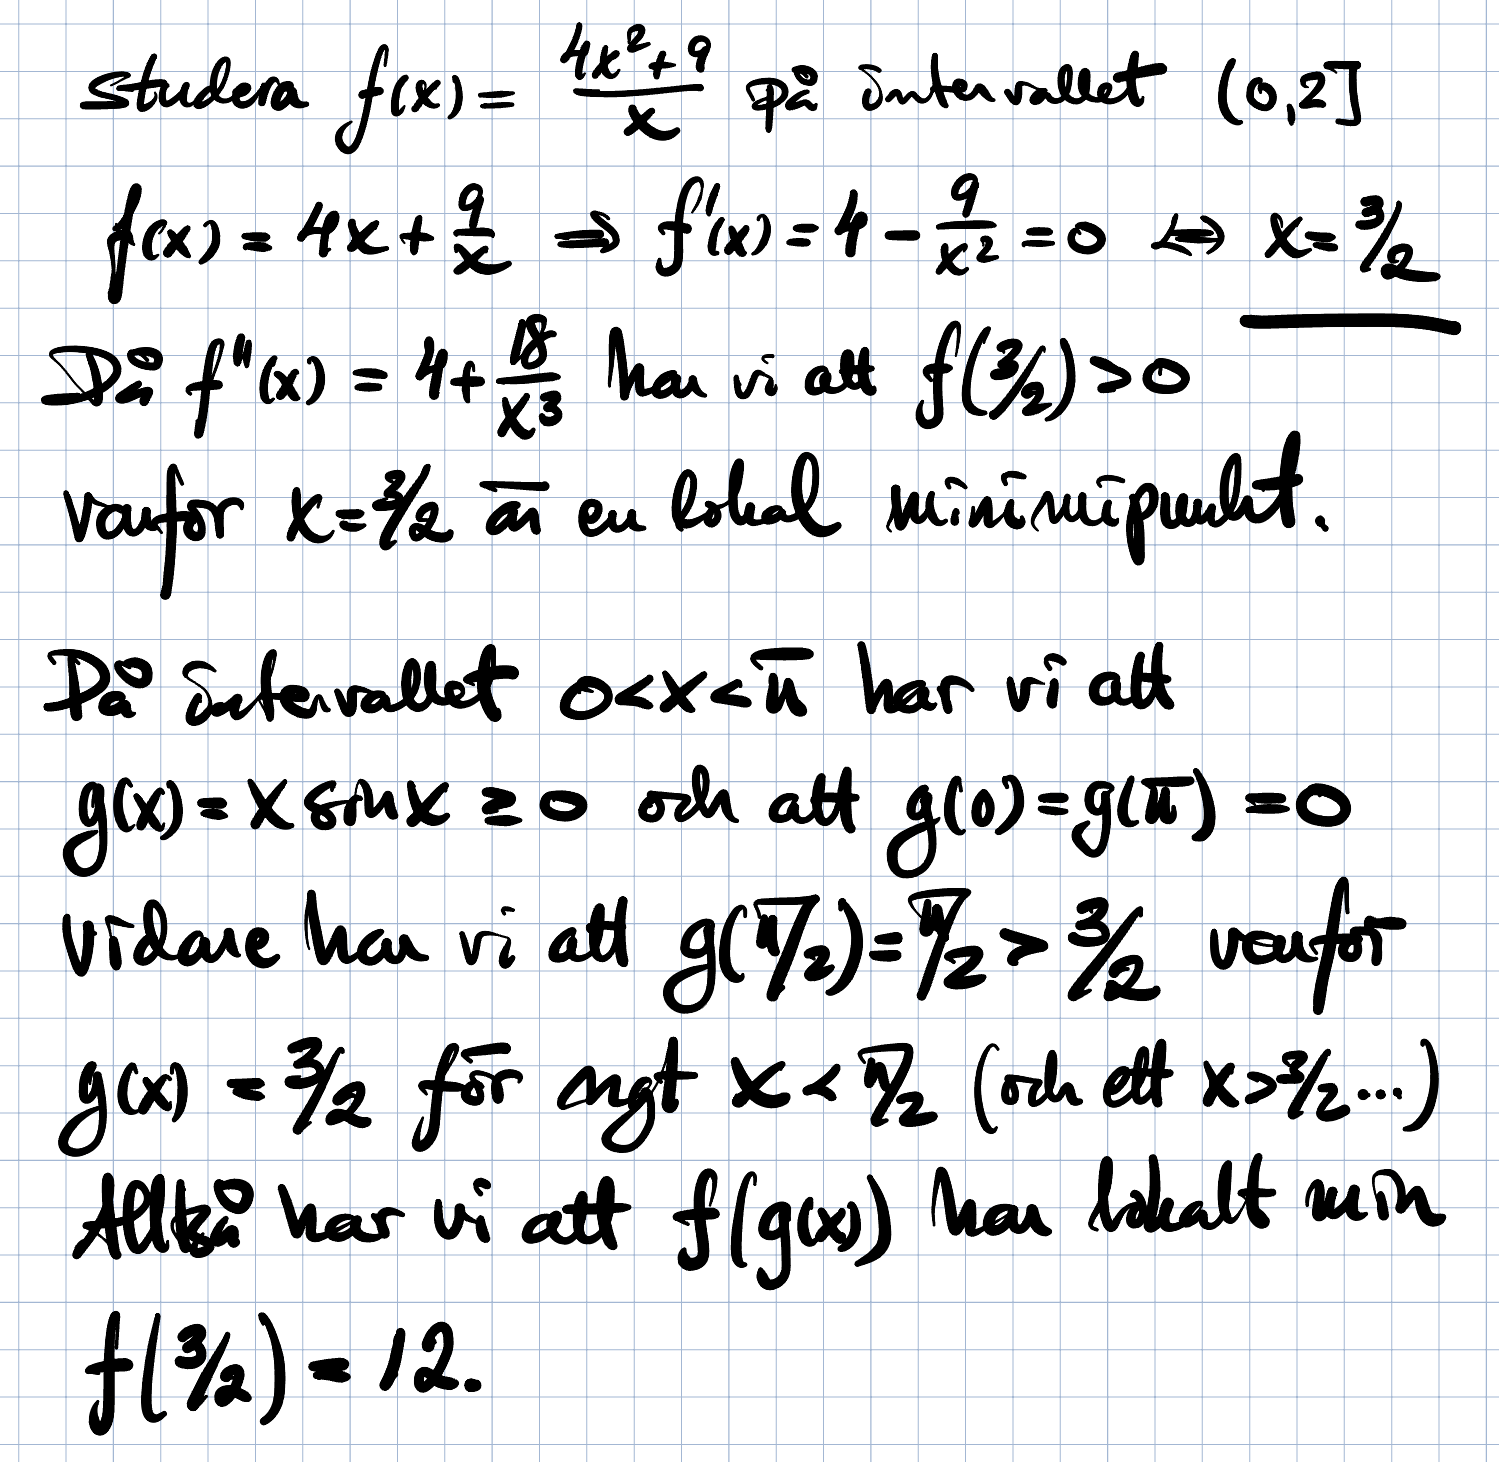 studera f(x) = (4x²+9)/x på intervallet (0,2]
f(x) = 4x + 9/x ⇒ f'(x) = 4 - 9/x² = 0 ⇔ x = 3/2
Då f''(x) = 4 + 18/x³ har vi att f(3/2) > 0
varför x = 3/2 är en lokal minimipunkt.
På intervallet 0 < x < π har vi att
g(x) = x sin x ≥ 0 och att g(0) = g(π) = 0
vidare har vi att g(π/2) = π/2 > 3/2 varför
g(x) = 3/2 för ngt x < π/2 (och ett x > 3/2 ...)
Alltså har vi att f(g(x)) har lokalt min
f(3/2) = 12.